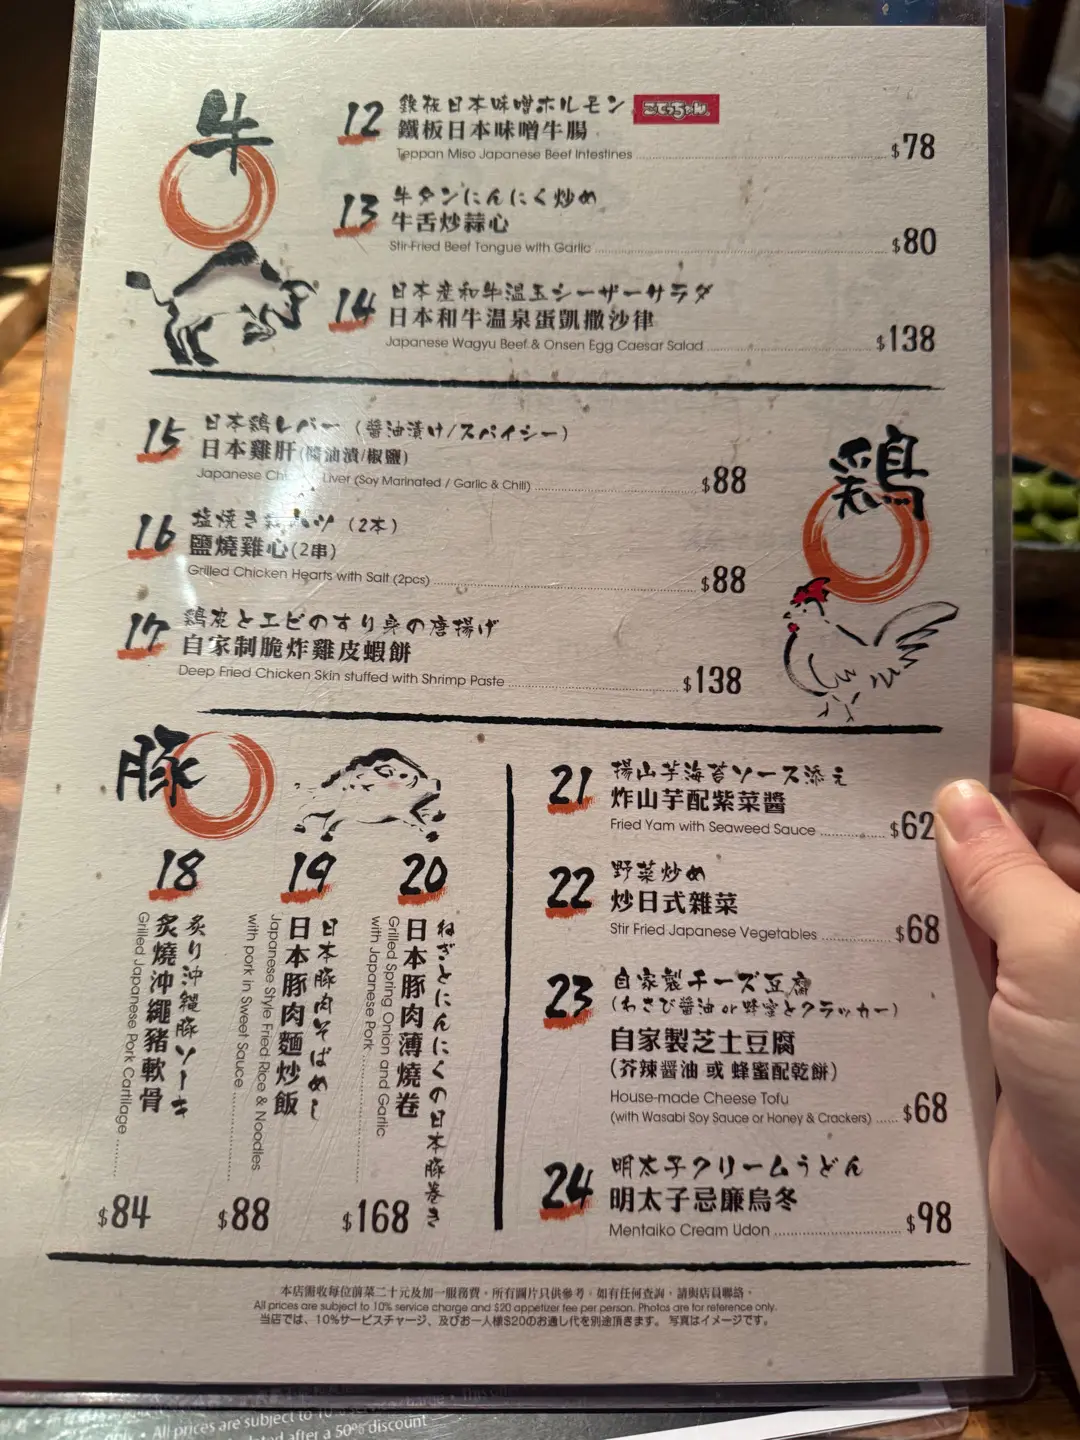 牛
12 鉄板日本味噌ホルモン こてっちゃん
鐵板日本味噌牛腸
Teppan Miso Japanese Beef Intestines $78
13 牛タンにんにく炒め
牛舌炒蒜心
Stir-Fried Beef Tongue with Garlic $80
14 日本産和牛温玉シーザーサラダ
日本和牛溫泉蛋凱撒沙律
Japanese Wagyu Beef & Onsen Egg Caesar Salad $138
鶏
15 日本鶏レバー (醤油漬け/スパイシー)
日本雞肝(醬油漬/椒鹽)
Japanese Liver (Soy Marinated / Garlic & Chili) $88
16 塩焼き ハツ (2本)
鹽燒雞心(2串)
Grilled Chicken Hearts with Salt (2pcs) $88
17 鶏皮とエビのすり身の唐揚げ
自家制脆炸雞皮蝦餅
Deep Fried Chicken Skin stuffed with Shrimp Paste $138
豚
18
炙り沖縄豚ソーキ
炙燒沖繩豬軟骨
Grilled Japanese Pork Cartilage
$84
19
日本豚肉そばめし
日本豚肉麵炒飯
Japanese Style Fried Rice & Noodles
with pork in Sweet Sauce
$88
20
ねぎとにんにくの日本豚巻き
日本豚肉薄燒卷
Grilled Spring Onion and Garlic
with Japanese Pork
$168
21 揚山芋海苔ソース添え
炸山芋配紫菜醬
Fried Yam with Seaweed Sauce $62
22 野菜炒め
炒日式雜菜
Stir Fried Japanese Vegetables $68
23 自家製チーズ豆腐
(わさび醤油 or 蜂蜜とクラッカー)
自家製芝士豆腐
(芥辣醬油 或 蜂蜜配乾餅)
House-made Cheese Tofu
(with Wasabi Soy Sauce or Honey & Crackers) $68
24 明太子クリームうどん
明太子忌廉烏冬
Mentaiko Cream Udon $98
本店需收每位前菜二十元及加一服務費。所有圖片只供參考。如有任何查詢，請與店員聯絡。
All prices are subject to 10% service charge and $20 appetizer fee per person. Photos are for reference only.
当店では、10%サービスチャージ、及びお一人様$20のお通し代を別途頂きます。 写真はイメージです。
• All prices are subject to 10
after a 50% discount